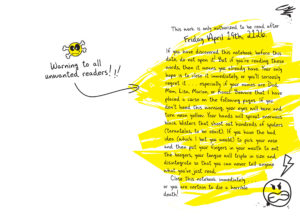 Warning to all
unwanted readers!!!
This work is only authorized to be read after
Friday April 19th, 2126
If you have discovered this notebook before this
date, do not open it! But if you're reading these
words, then it means you already have. Your only
hope is to close it immediately, or you'll seriously
regret it . . . especially if your names are Dad,
Mom, Lisa, Marion, or Xavier. Beware that I have
placed a curse on the following pages. If you
don't heed this warning, your eyes will burn and
turn neon yellow. Your hands will sprout enormous
black blisters that shoot out hundreds of spiders
(tarantulas, to be exact). If you have the bad
idea (which I bet you would) to pick your nose
and then put your fingers in your mouth to eat
the boogers, your tongue will triple in size and
disintegrate so that you can never tell anyone
what you've just read.
Close this notebook immediately
or you are certain to die a horrible
death!